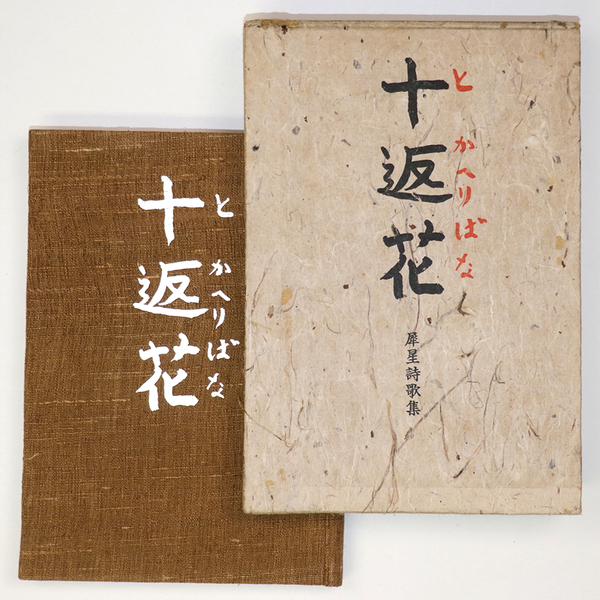 十返花
とかへりばな
犀星詩歌集
十返花
とかへりばな